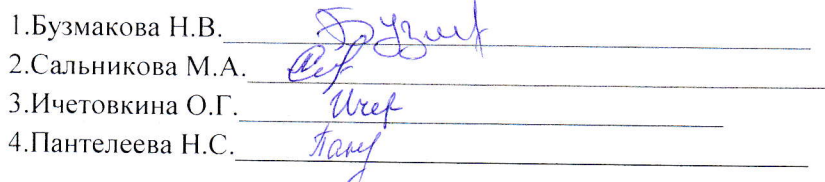 1.Бузмакова Н.В.
2.Сальникова М.А.
3.Ичетовкина О.Г.
4.Пантелеева Н.С.